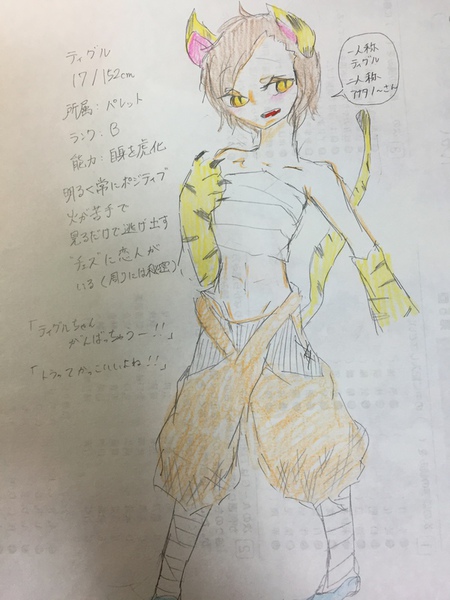 ティグル
17/152cm
所属:パレット
ランク:B
能力:自身を虎化
明るく常にポジティブ
火が苦手で
見るだけで逃げ出す
"チェズ"に恋人が
いる(周りには秘密)
「ティグルちゃん
がんばっちゃうー!!」
「トラってかっこいいよね!!」
一人称
ティグル
二人称
〜さん